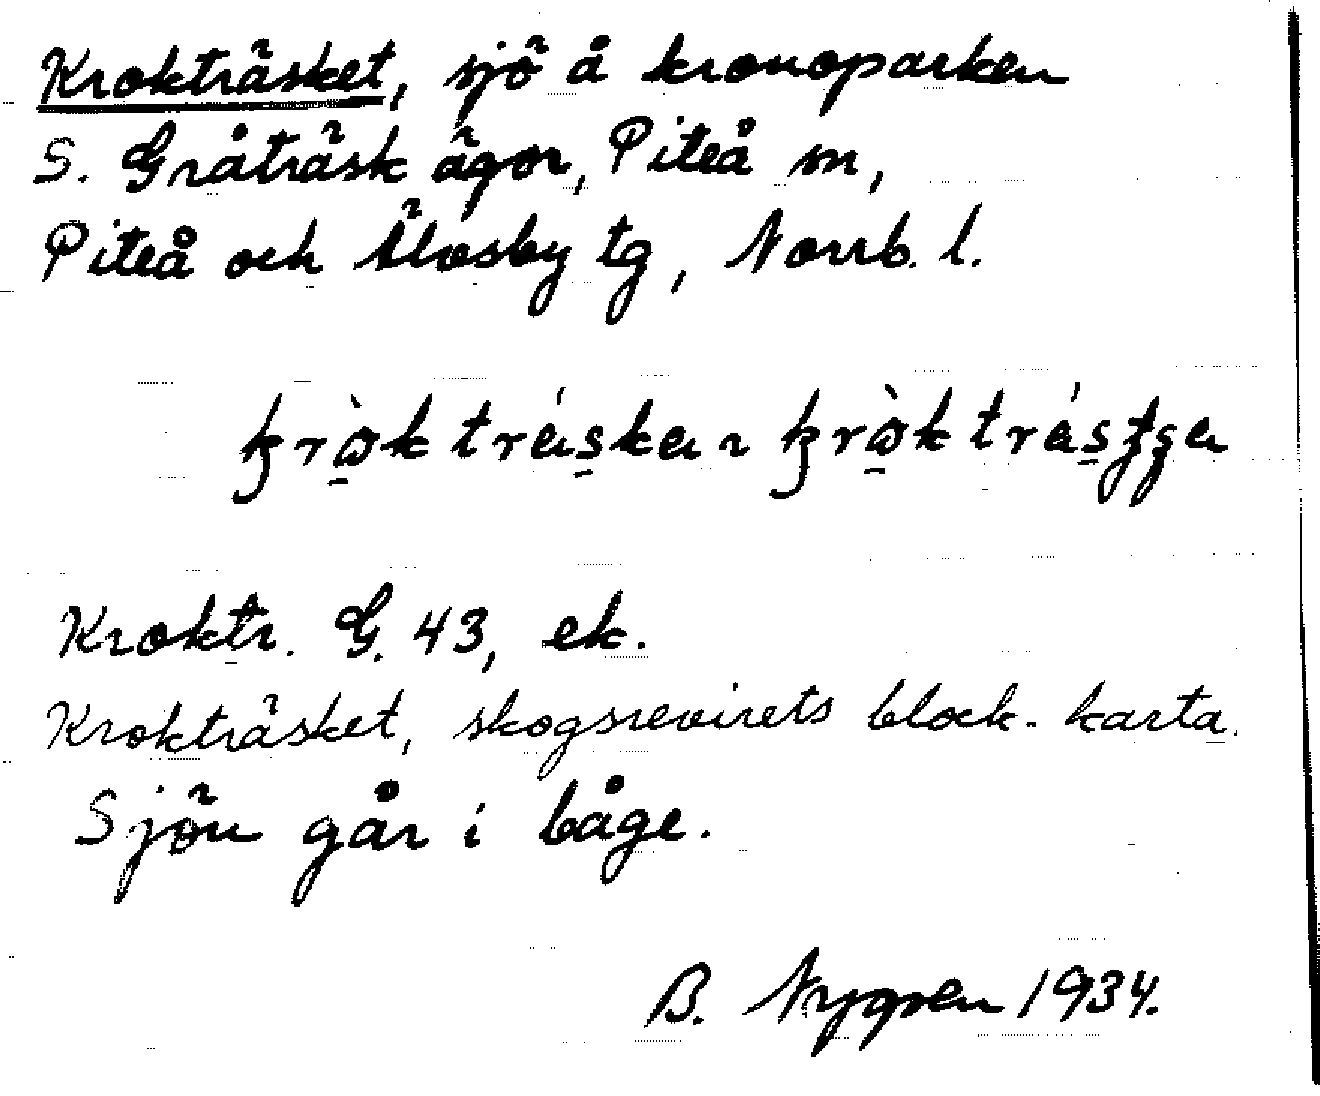 Krokträsket, sjö å kronoparken
S. Gråträsk ägor, Piteå sn,
Piteå och Älvsby tg, Norrb. l.
Kroktr. G. 43, ek.
Krokträsket, skogsrevirets block-karta.
Sjön går i båge.
B. Nygren 1934.